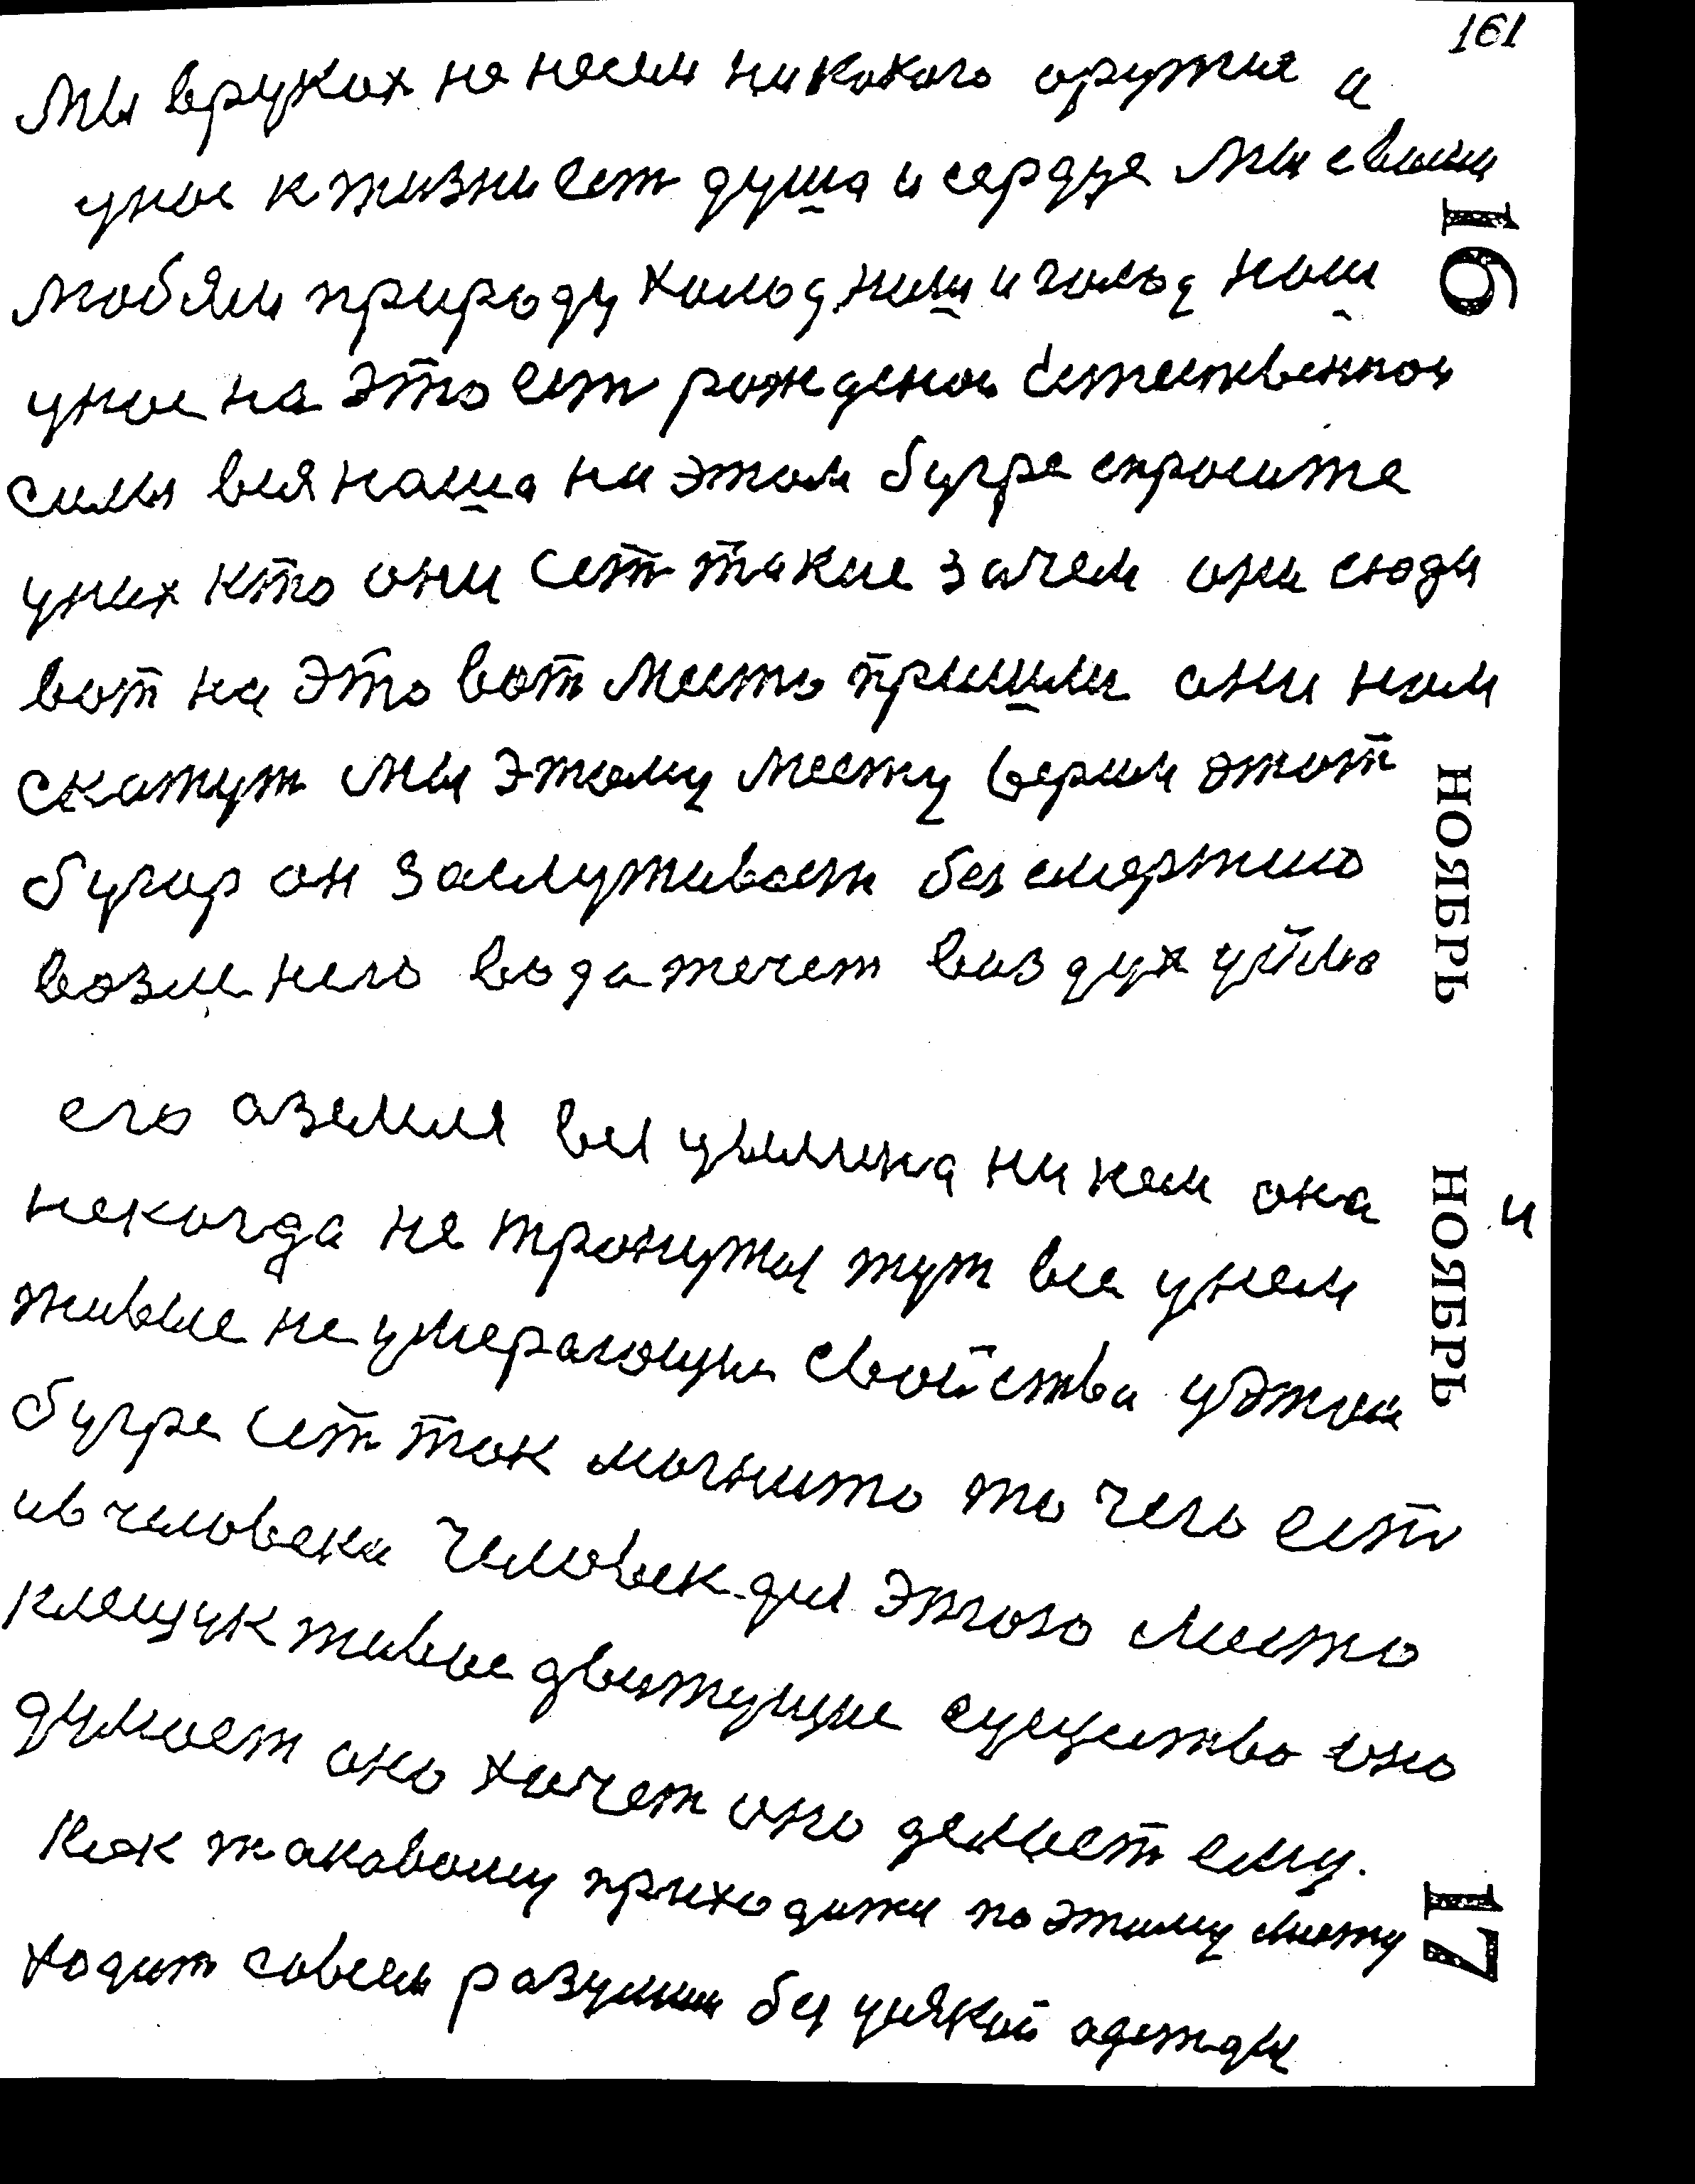 161
мы вруках не несем никокого оружия а
унас к жизни ест душа и сердце мы своими
любям природу холод, наш и голод наш
унас на это ест рождена Естественная
силы вся наша на этом бугре спросите
уних кто они ест такие зачем они сюда
вот на это вот место пришли они нам
скажут мы этому месту верим этот
бугор он заслуживает безсмертию
возле него вода течет воздух устлю
его а земля вся усыпина ни кем она и
некогда не тронутая тут все унем
живые не умерающие свойства уэтом
бугре ест ток могнито то чего есть
ив человеки человек для этого место
клещук живые движущие существо оно
думоет оно хочет оно делоет ему.
Как жаковому приходижи по этому месту
ходит совсем разумши без усякой одежды
16
НОЯБРЬ
НОЯБРЬ
17